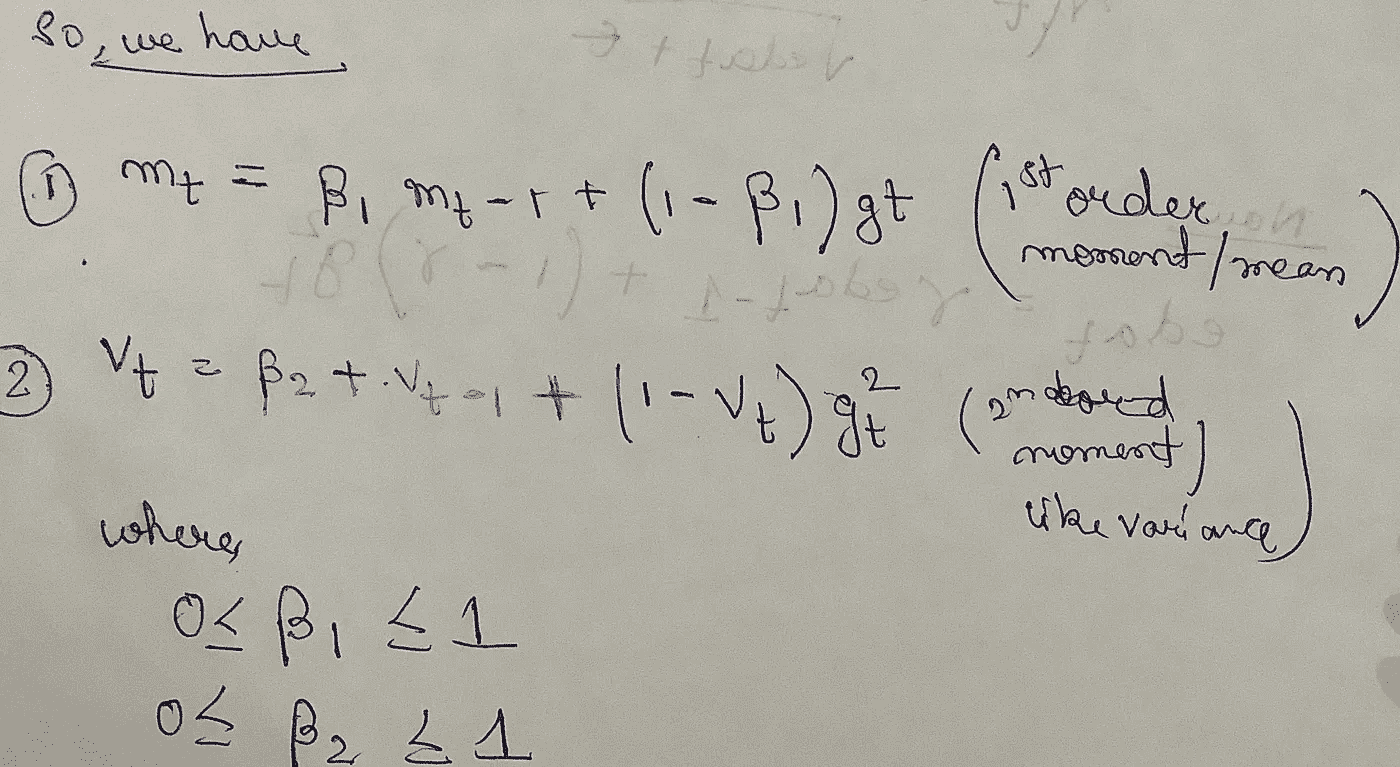 So, we have
① mt = β1 mt-1 + (1 - β1) gt (1st order
moment/mean)
② Vt = β2 + . Vt-1 + (1 - Vt) gt² (2nd
moment)
like variance)
where,
0 ≤ β1 ≤ 1
0 ≤ β2 ≤ 1